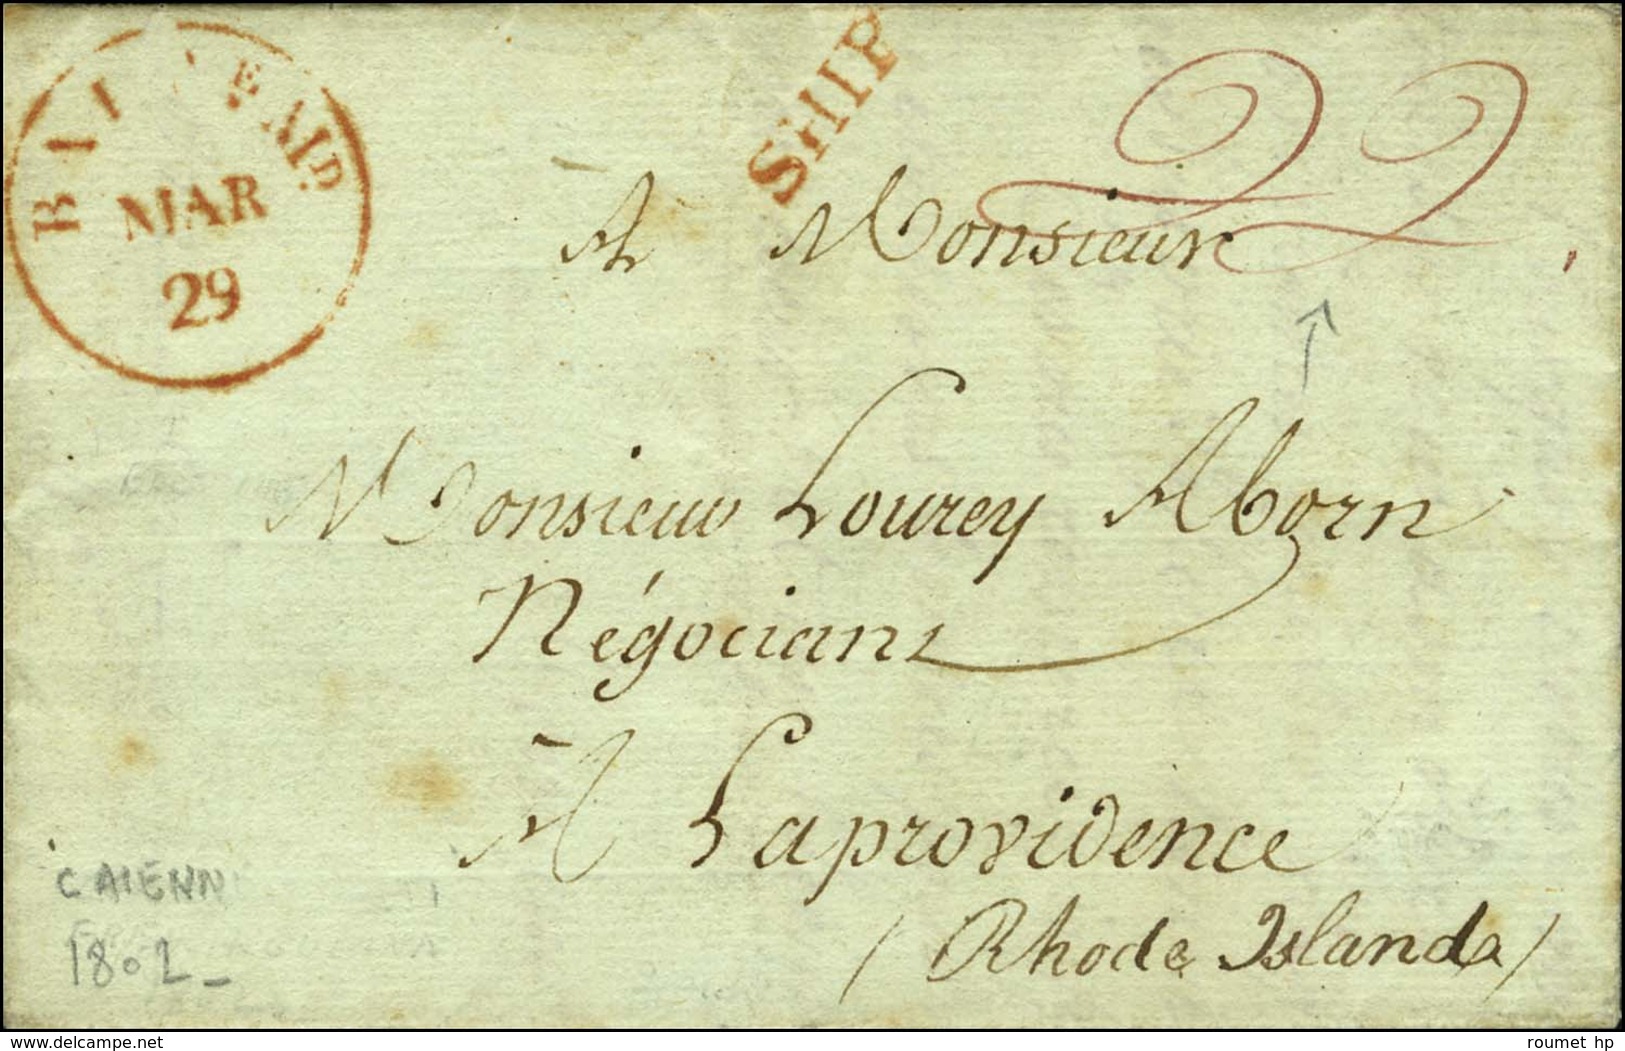 BAL
MAR
29
SHIP
22
A Monsieur
Monsieur Lourey Aborn
Négociant
A Laprovidence
(Rhode Islanda)
CAIENN
1802
delcampe.net
roumet hp